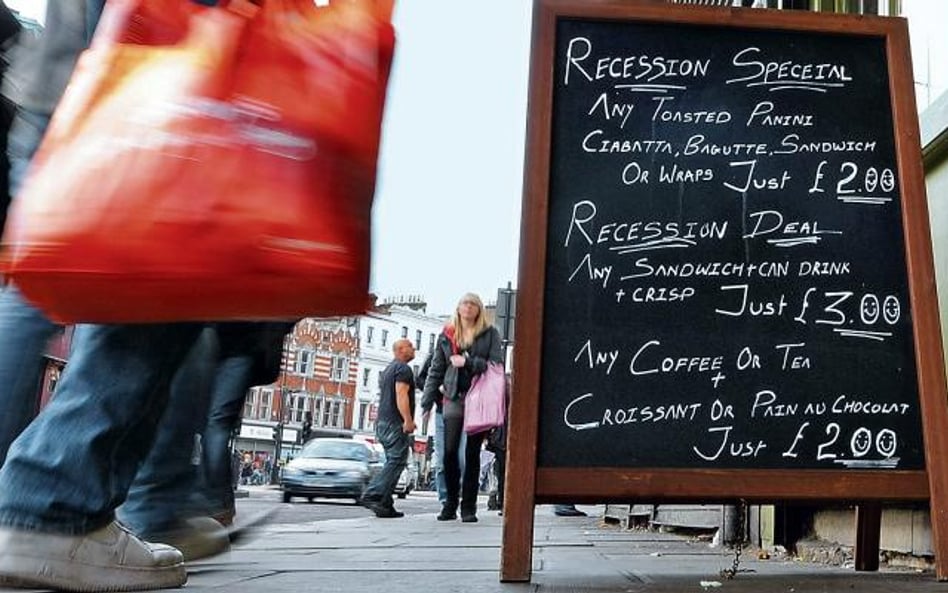 RECESSION SPECEIAL
ANY TOASTED PANINI
CIABATTA, BAGUTTE, SANDWICH
OR WRAPS Just £2.00
RECESSION DEAL
ANY SANDWICH+CAN DRINK
+ CRISP Just £3.00
ANY COFFEE OR TEA
+
CROISSANT OR PAIN AU CHOCOLAT
Just £2.00